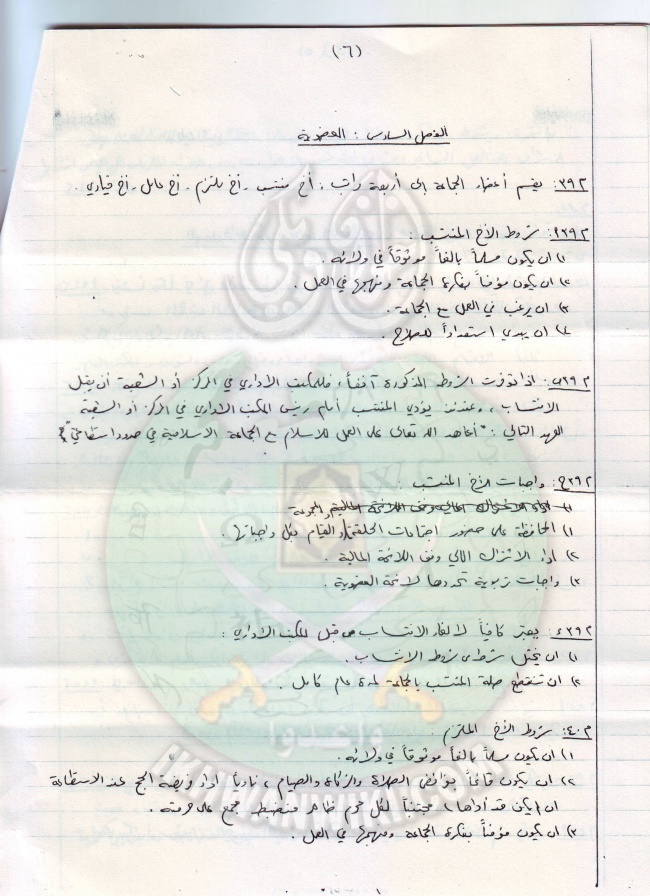 (٦)
الفصل السادس : العضوية
م٣٩: يقسم أعضاء الجماعة إلى أربعة مراتب : أخ منتسب - أخ ملتزم - أخ عامل - أخ قيادي .
م٣٩أ: شروط الأخ المنتسب :
١) ان يكون مسلماً بالغاً موثوقاً في ولائه .
٢) ان يكون مؤمناً بفكرة الجماعة ومنهجها في العمل .
٣) ان يرغب في العمل مع الجماعة .
٤) ان يبدي استعداداً للصلاح .
م٣٩ب: اذا توفرت الشروط المذكورة آنفاً ، فللمكتب الاداري في المركز أو الشعبة أن يقبل
الانتساب ، وعندئذ يؤدي المنتسب أمام رئيس المكتب الاداري في المركز أو الشعبة
العهد التالي : " أعاهد الله تعالى على العمل للاسلام مع الجماعة الاسلامية في حدود استطاعتي "
م٣٩ج: واجبات الأخ المنتسب :
١) المحافظة على حضور اجتماعات الحلقة والقيام بكل واجباتها .
٢) اداء الاشتراك المالي وفق اللائحة المالية .
٣) واجبات تربوية تحددها لائحة العضوية .
م٣٩د: يعتبر كافياً لالغاء الانتساب من قبل المكتب الاداري :
١) ان يختل شرط من شروط الانتساب .
٢) ان تنقطع صلة المنتسب بالجماعة لمدة عام كامل .
م٤٠: شروط الأخ الملتزم :
١) ان يكون مسلماً بالغاً موثوقاً في ولائه .
٢) ان يكون قائماً بفرائض الصلاة والزكاة والصيام ، ناوياً اداء فريضة الحج عند الاستطاعة
ان لم يكن قد أداها ، مجتنباً لكل محرم ظاهر منضبط مجمع على حرمته .
٣) ان يكون مؤمناً بفكرة الجماعة ومنهجها في العمل .
وأعدوا
IKHWANWIKI.COM